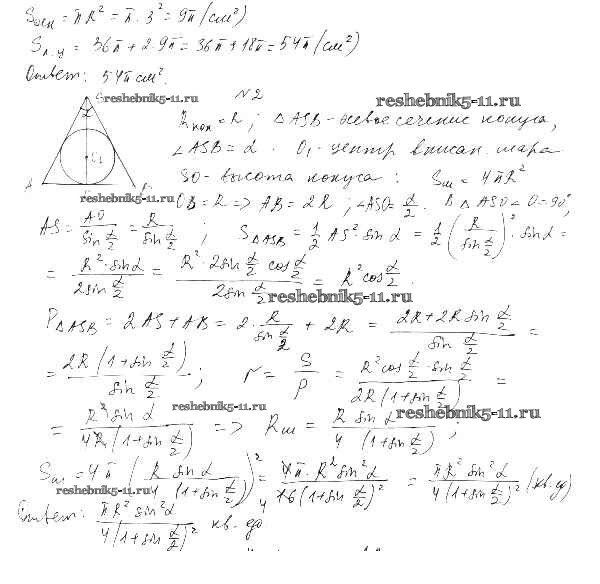 Sосн = πR² = π·3² = 9π (см²)
Sп.у = 36π + 2·9π = 36π + 18π = 54π (см²)
Ответ: 54π см².
reshebnik5-11.ru
№2
reshebnik5-11.ru
Rкон = R; △ASB - осевое сечение конуса,
∠ASB = α. O₁ - центр вписан. шара.
SO - высота конуса: Sш = 4πR²
reshebnik5-11.ru OB = R => AB = 2R; ∠ASO = α/2. В △ASO ∠O = 90°,
AS = AO/sin α/2 = R/sin α/2; S△ASB = 1/2 AS²·sin α = 1/2 (R/sin α/2)²·sin α =
= R²·sin α/2sin α/2 = R²·2sin α/2 cos α/2/2sin α/2 = R² cos α/2.
reshebnik5-11.ru
P△ASB = 2AS + AB = 2·R/sin α/2 + 2R = 2R + 2R sin α/2/sin α/2 =
= 2R(1 + sin α/2)/sin α/2; r = S/P = R² cos α/2 · sin α/2/2R(1 + sin α/2) =
reshebnik5-11.ru
= R² sin α/4R(1 + sin α/2) => Rш = R sin α/4(1 + sin α/2);
reshebnik5-11.ru
Sш = 4π (R sin α/4(1 + sin α/2))² = 4π·R² sin² α/16(1 + sin α/2)² = πR² sin² α/4(1 + sin α/2)² (кв.ед)
reshebnik5-11.ru
Ответ: πR² sin² α/4(1 + sin α/2)² кв. ед.